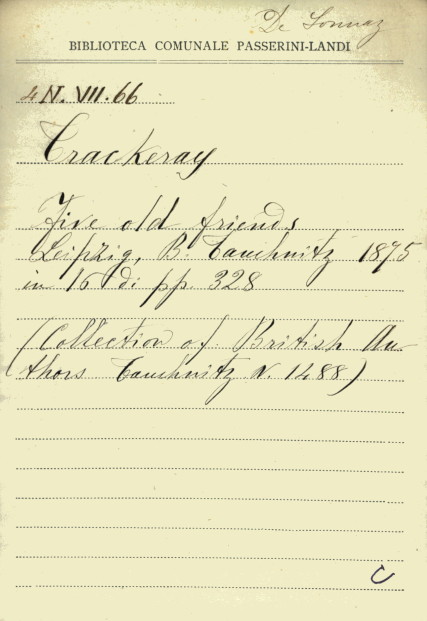 De Sonnaz
BIBLIOTECA COMUNALE PASSERINI-LANDI
4 N. VII. 66
Trackeray
Five old friends
Leipzig, B. Tauchnitz 1875
in 16 di pp. 328
(Collection of British Au-
thors Tauchnitz N. 1488)
C